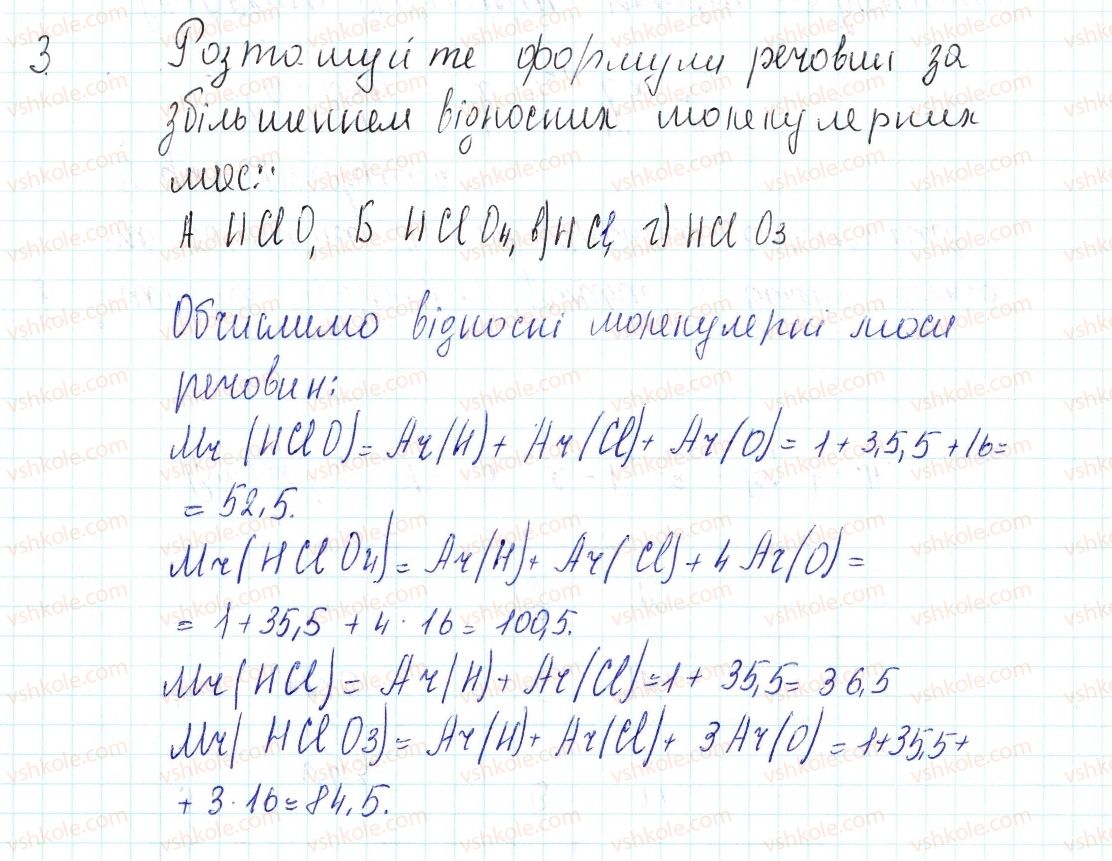 3. Розташуйте формули речовин за
збільшенням відносних молекулярних
мас:
А HClO, Б HClO4, в) HCl, г) HClO3
Обчислимо відносні молекулярні маси
речовин:
Mr(HClO) = Ar(H) + Ar(Cl) + Ar(O) = 1 + 35,5 + 16 =
= 52,5.
Mr(HClO4) = Ar(H) + Ar(Cl) + 4 Ar(O) =
= 1 + 35,5 + 4 · 16 = 100,5.
Mr(HCl) = Ar(H) + Ar(Cl) = 1 + 35,5 = 36,5
Mr(HClO3) = Ar(H) + Ar(Cl) + 3 Ar(O) = 1 + 35,5 +
+ 3 · 16 = 84,5.